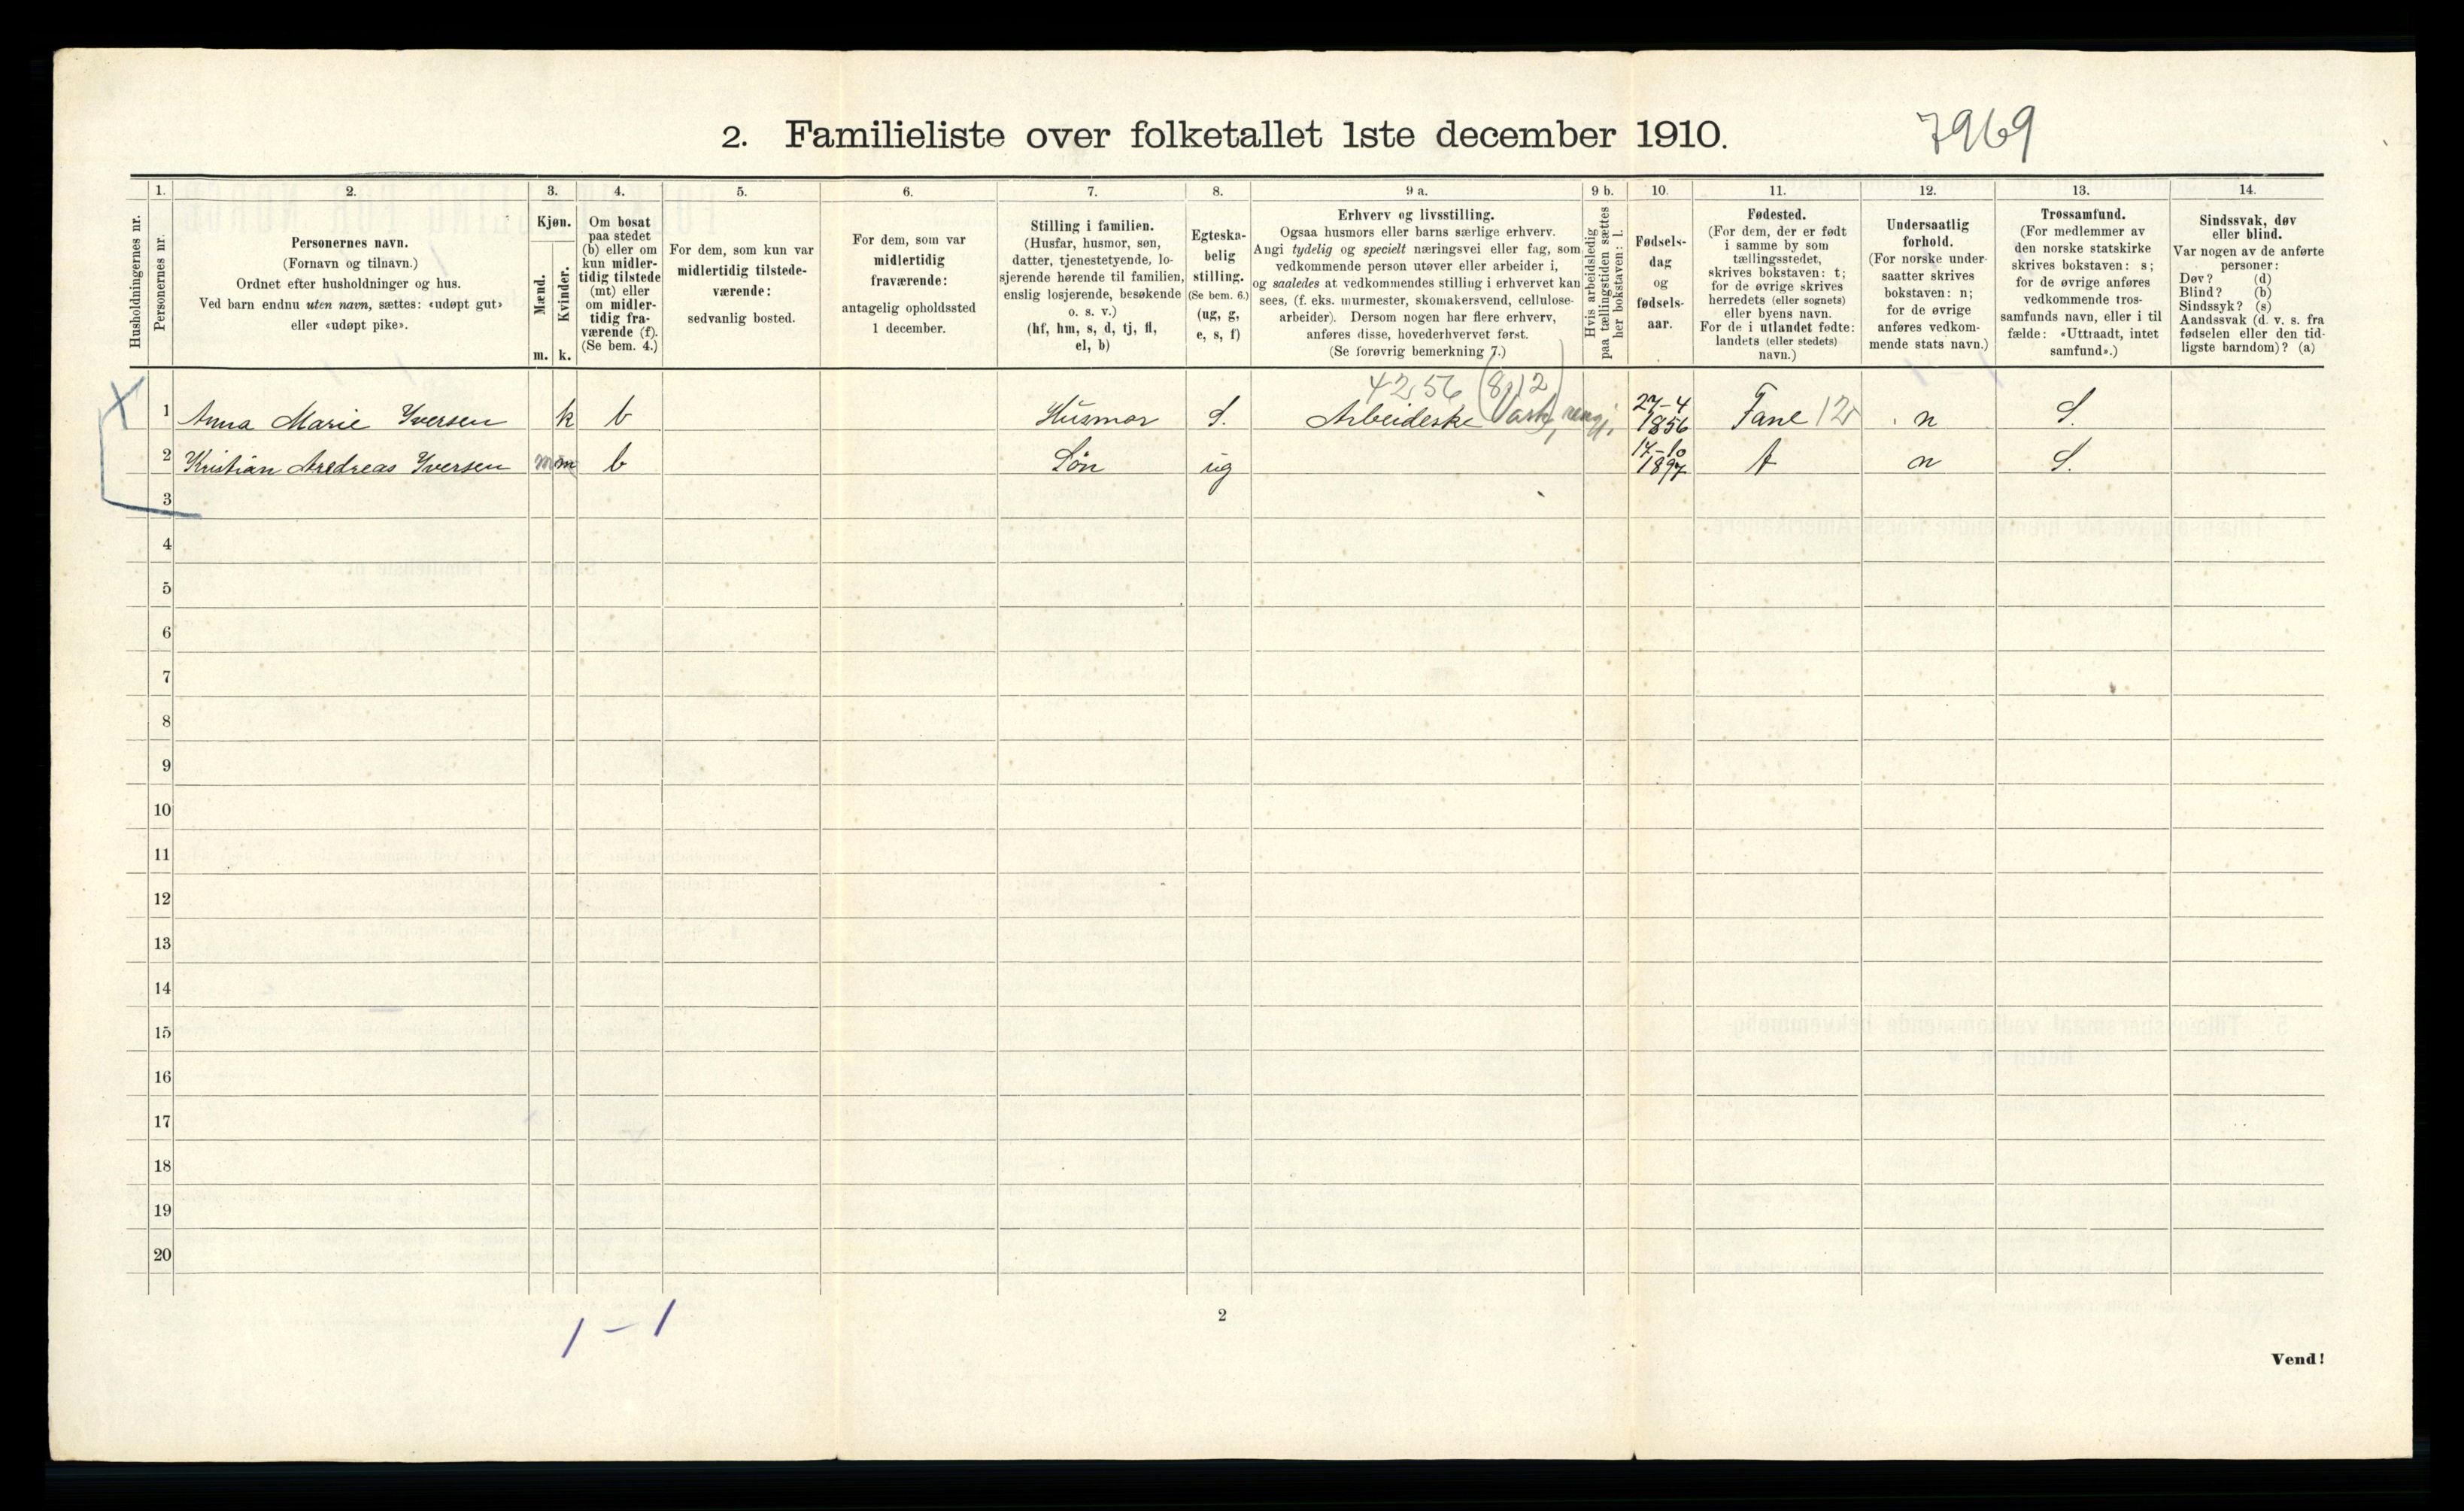 2. Familieliste over folketallet 1ste december 1910.
7969
Husholdningernes nr.
1.
Personernes nr.
2.
Personernes navn.
(Fornavn og tilnavn.)
Ordnet efter husholdninger og hus.
Ved barn endnu uten navn, sættes: «udøpt gut»
eller «udøpt pike».
3.
Kjøn.
Mænd.
Kvinder.
m. k.
4.
Om bosat
paa stedet
(b) eller om
kun midler-
tidig tilstede
(mt) eller
om midler-
tidig fra-
værende (f).
(Se bem. 4.)
5.
For dem, som kun var
midlertidig tilstede-
værende:
sedvanlig bosted.
6.
For dem, som var
midlertidig
fraværende:
antagelig opholdssted
1 december.
7.
Stilling i familien.
(Husfar, husmor, søn,
datter, tjenestetyende, lo-
sjerende hørende til familien,
enslig losjerende, besøkende
o. s. v.)
(hf, hm, s, d, tj, fl,
el, b)
8.
Egteska-
belig
stilling.
(Se bem. 6.)
(ug, g,
e, s, f)
9 a.
Erhverv og livsstilling.
Ogsaa husmors eller barns særlige erhverv.
Angi tydelig og specielt næringsvei eller fag, som
vedkommende person utøver eller arbeider i,
og saaledes at vedkommendes stilling i erhvervet kan
sees, (f. eks. murmester, skomakersvend, cellulose-
arbeider). Dersom nogen har flere erhverv,
anføres disse, hovederhvervet først.
(Se forøvrig bemerkning 7.)
9 b.
Hvis arbeidsledig
paa tællingstiden sættes
her bokstaven: l.
10.
Fødsels-
dag
og
fødsels-
aar.
11.
Fødested.
(For dem, der er født
i samme by som
tællingsstedet,
skrives bokstaven: t;
for de øvrige skrives
herredets (eller sognets)
eller byens navn.
For de i utlandet fødte:
landets (eller stedets)
navn.)
12.
Undersaatlig
forhold.
(For norske under-
saatter skrives
bokstaven: n;
for de øvrige
anføres vedkom-
mende stats navn.)
13.
Trossamfund.
(For medlemmer av
den norske statskirke
skrives bokstaven: s;
for de øvrige anføres
vedkommende tros-
samfunds navn, eller i til
fælde: «Uttraadt, intet
samfund».)
14.
Sindssvak, døv
eller blind.
Var nogen av de anførte
personer:
Døv? (d)
Blind? (b)
Sindssyk? (s)
Aandssvak (d. v. s. fra
fødselen eller den tid-
ligste barndom)? (a)
4256 (812)
X 1 Anna Marie Iversen k b Husmor S. Arbeideske Vask, rengj. 27-4 1856 Fane 12 n S.
2 Kristian Andreas Iversen m m b Søn ug 14-10 1897 t n S.
3
4
5
6
7
8
9
10
11
12
13
14
15
16
17
18
19
20
1 - 1
2
Vend!